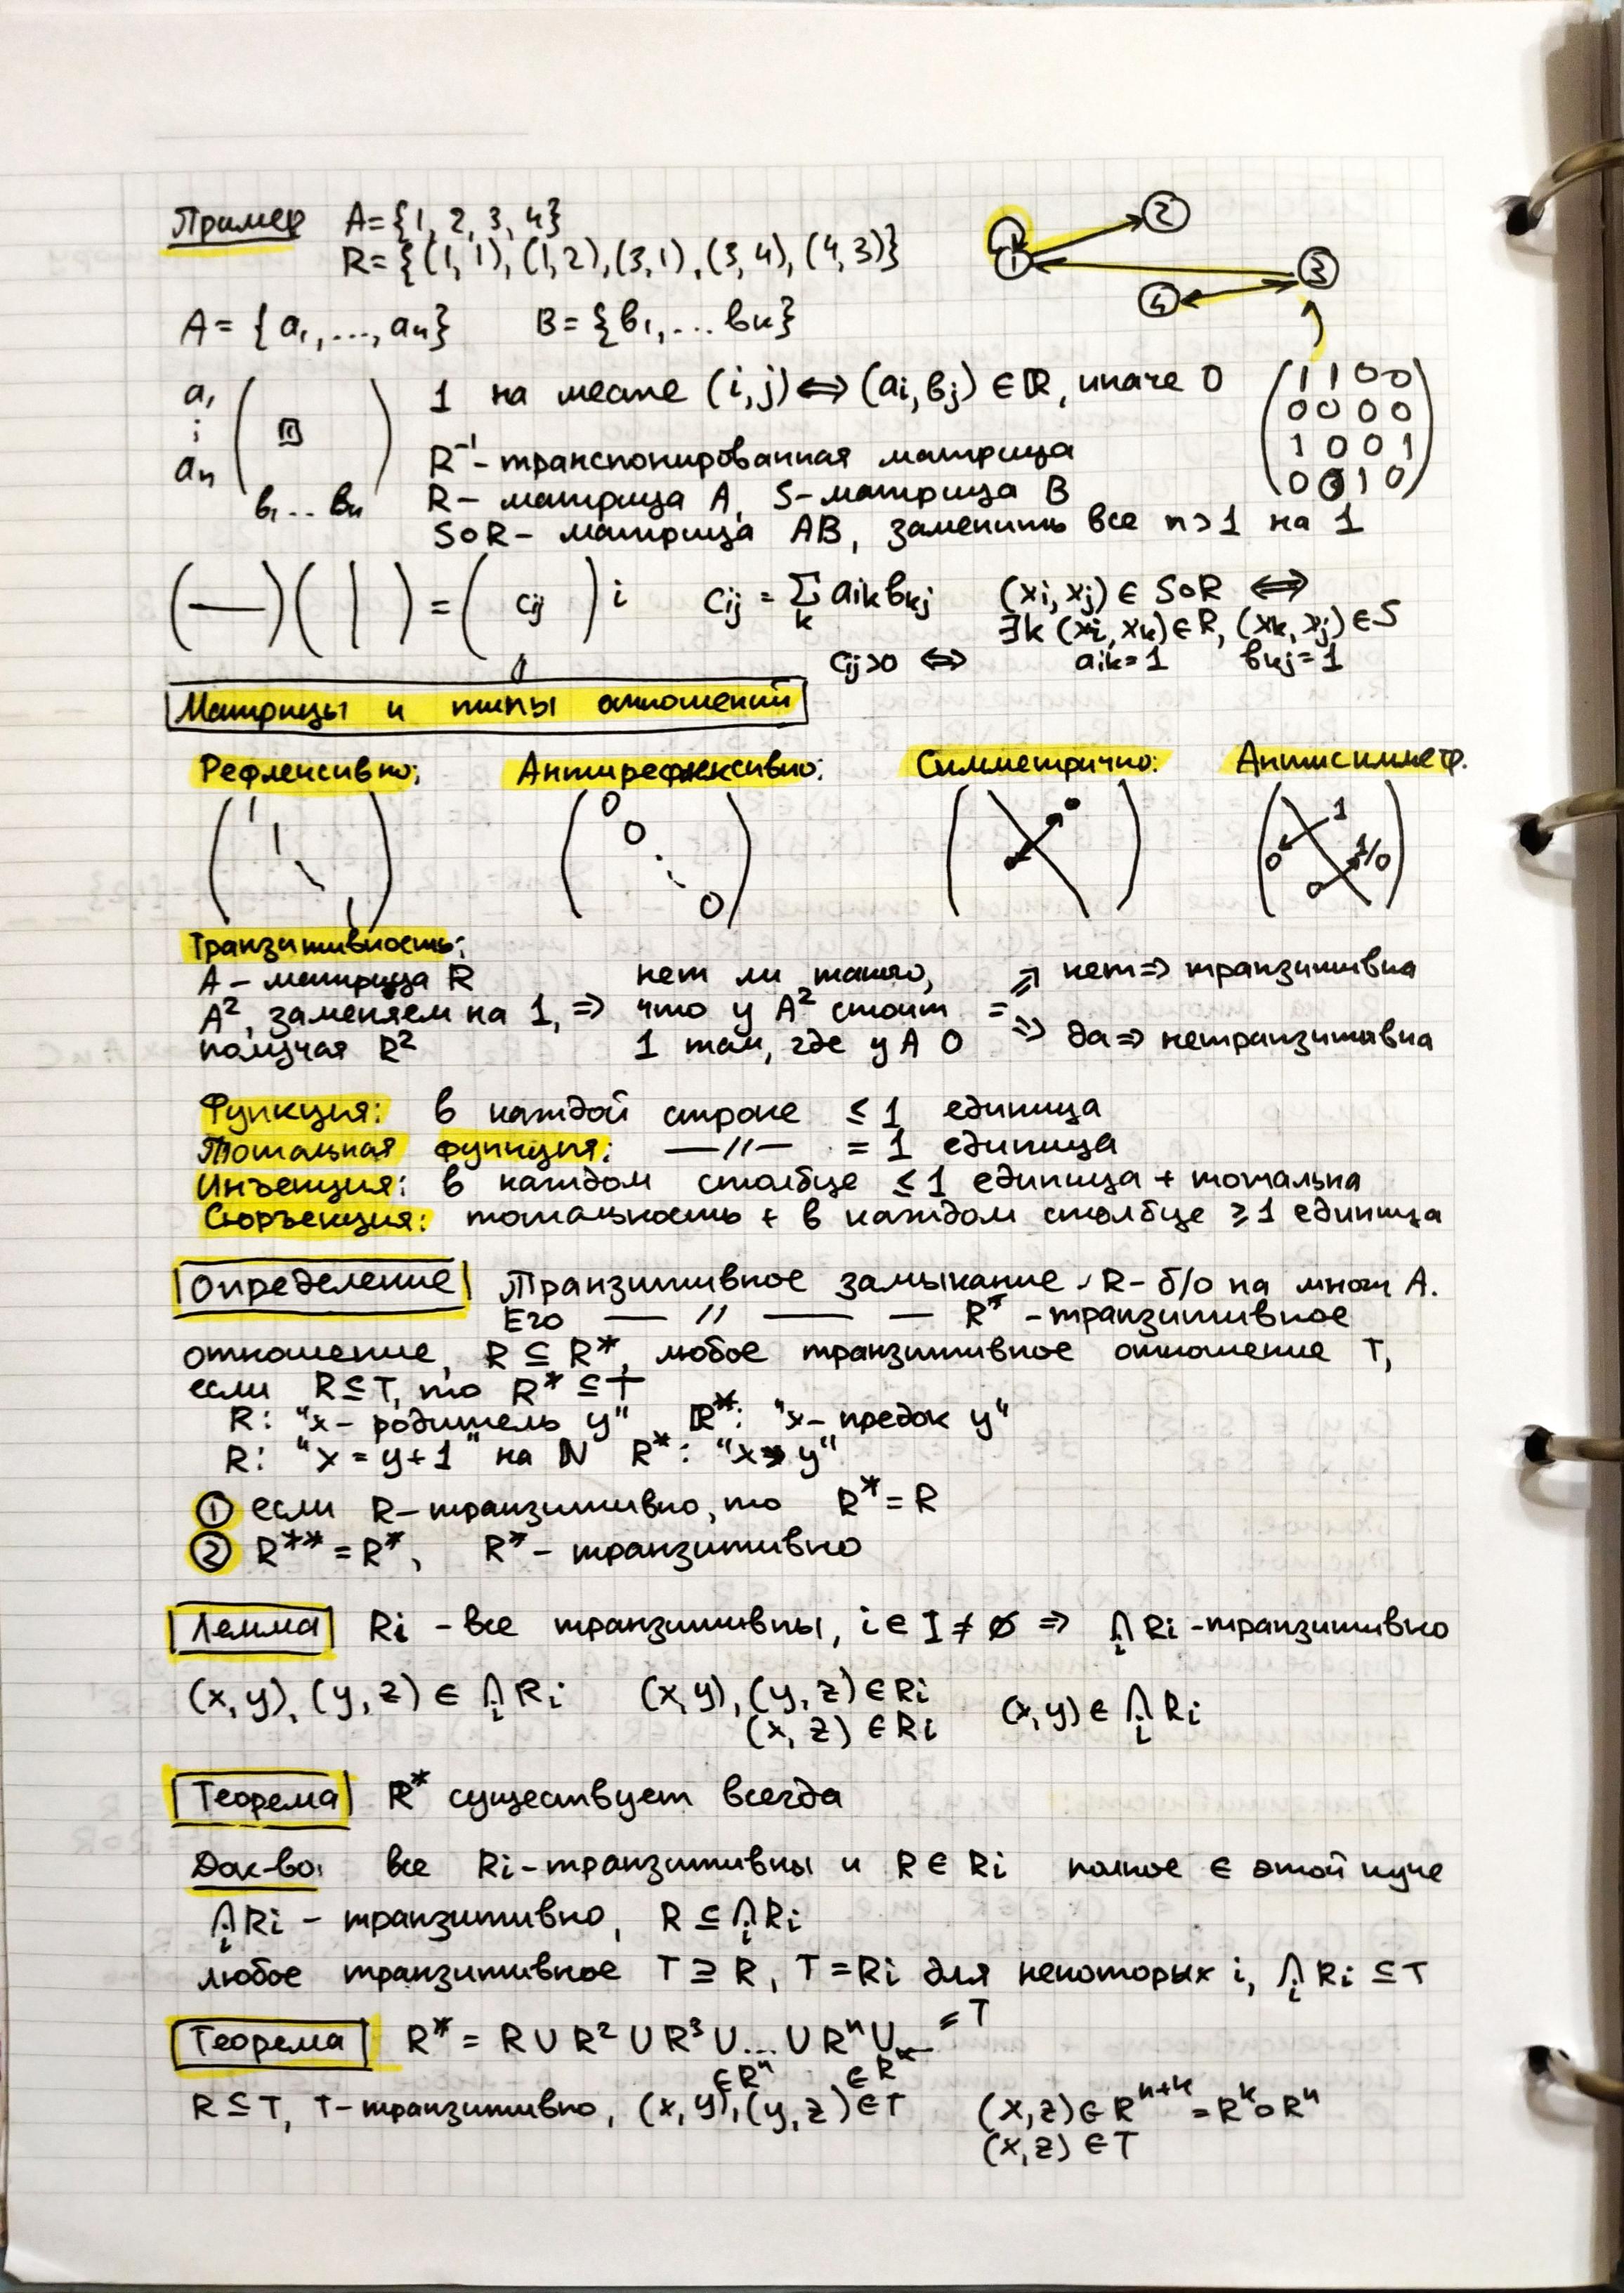 Пример A={1, 2, 3, 4}
R={(1,1),(1,2),(3,1),(3,4),(4,3)}
1 2 3 4
A={a₁,...,aₙ} B={b₁,...bₖ}
a₁ ⋮ aₙ
b₁...bₙ
1 на месте (i,j)⟺(aᵢ,bⱼ)∈R, иначе 0
1 1 0 0
0 0 0 0
1 0 0 1
0 0 1 0
R⁻¹-транспонированная матрица
R- матрица A, S-матрица B
S∘R- матрица AB, заменить все n>1 на 1
(—)(|)=(cᵢⱼ) i cᵢⱼ = Σₖ aᵢₖbₖⱼ (xᵢ,xⱼ)∈S∘R ⟺
j ∃k (xᵢ,xₖ)∈R, (xₖ,xⱼ)∈S
cᵢⱼ>0 ⟺ aᵢₖ=1 bₖⱼ=1
Матрицы и типы отношений
Рефлексивно: Антирефлексивно: Симметрично: Антисимметр.
1 1 1
0 0 0
1 0 1/0 0
Транзитивность:
A-матрица R нет ли такого, ⇒ нет⇒ транзитивна
A², заменяем на 1, ⇒ что у A² стоит =
получая R² 1 там, где у A 0 ⇒ да⇒ нетранзитивна
Функция: в каждой строке ≤1 единица
Тотальная функция: —//— =1 единица
Инъекция: в каждом столбце ≤1 единица + тотальна
Сюръекция: тотальность + в каждом столбце ≥1 единица
Определение Транзитивное замыкание. R- б/о на множ A.
Его —//— — R* -транзитивное
отношение, R⊆R*, любое транзитивное отношение T,
если R⊆T, то R*⊆T
R: "x- родитель y" R*: "x- предок y"
R: "x=y+1" на ℕ R*: "x>y"
① если R-транзитивно, то R*=R
② R**=R*, R*- транзитивно
Лемма Rᵢ -все транзитивны, i∈I≠∅ ⇒ ⋂ᵢRᵢ-транзитивно
(x,y),(y,z)∈⋂ᵢRᵢ (x,y),(y,z)∈Rᵢ
(x,z)∈Rᵢ (x,y)∈⋂ᵢRᵢ
Теорема R* существует всегда
Док-во: все Rᵢ-транзитивны и R∈Rᵢ полное ∈ этой куче
⋂ᵢRᵢ - транзитивно, R⊆⋂ᵢRᵢ
любое транзитивное T⊇R, T=Rᵢ для некоторых i, ⋂ᵢRᵢ⊆T
Теорема R*=R∪R²∪R³∪...∪Rⁿ∪... =T
∈Rⁿ ∈Rᵏ
R⊆T, T-транзитивно, (x,y),(y,z)∈T (x,z)∈Rⁿ⁺ᵏ=Rᵏ∘Rⁿ
(x,z)∈T